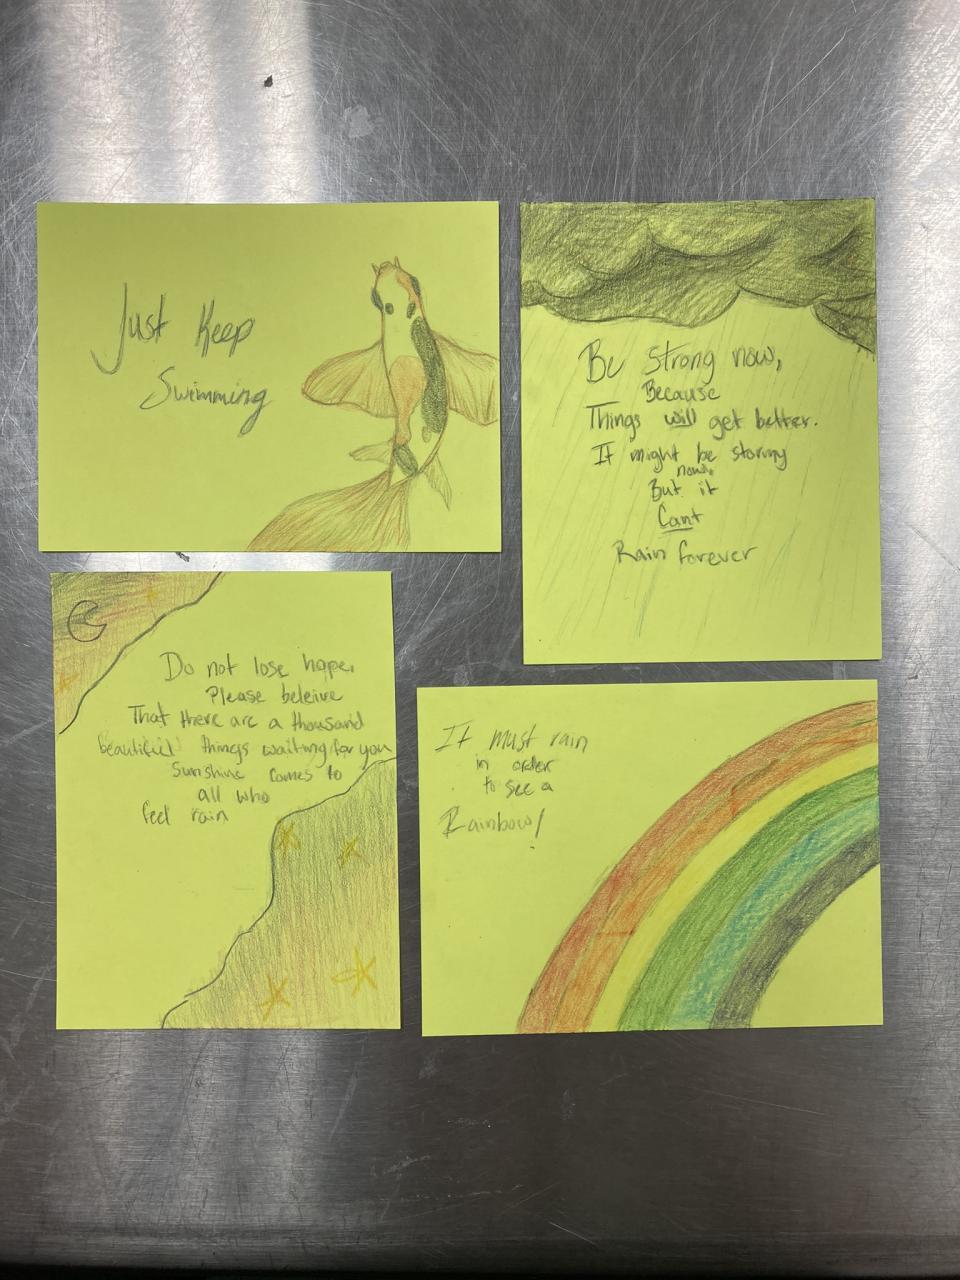 Just Keep
Swimming
Be strong now,
Because
Things will get better.
It might be stormy
now.
But it
Cant
Rain forever
Do not lose hope.
Please beleive
That there are a thousand
beautiful things waiting for you
Sunshine comes to
all who
feel rain
It must rain
in order
to see a
Rainbow!